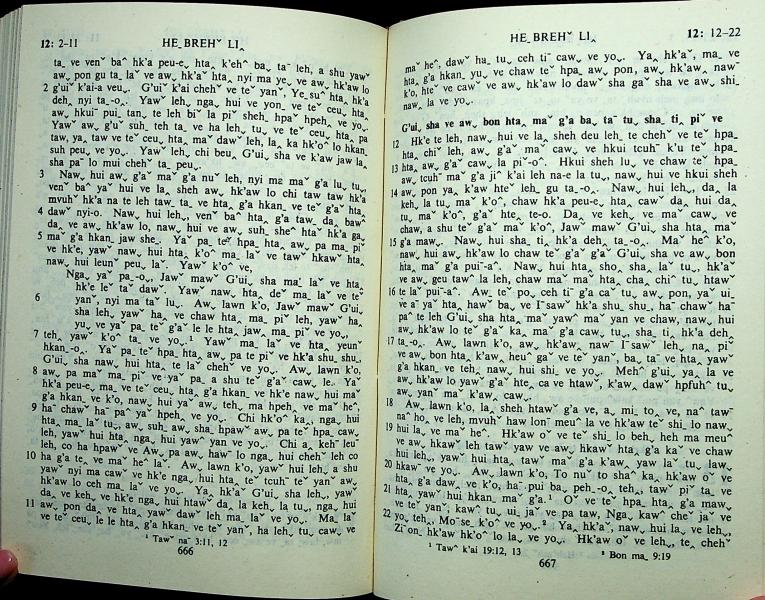 12: 2-11
HE_ BREHˇ LI‸
ta_ ve venˇ ba^ hk'a peu-e˯ hta‸ k'eh^ ba˯ ta^ leh, a shu yawˇ
aw˯ pon gu ta_ laˇ ve aw˯ hk'aˇ hta‸ nyi ma ye˯ ve aw˯ hk'aw lo
2 g'uiˇ k'ai-a veu_. G'uiˇ k'ai chehˇ ve teˇ yanˇ, Ye_ su^ hta‸ hk'a
deh‸ nyi ta_-o‸. Yawˇ leh˯ nga‸ hui ve yon_ ve teˇ ceu˯ hta‸
aw˯ hkuiˇ pui_ tan_ te leh biˇ la piˇ sheh_ hpaˇ hpeh‸ ve yo˯.
Yawˇ aw˯ g'uˇ suh_ teh ta_ ve ha leh˯ tu˯ ve teˇ ceu˯ hta‸ pa
taw, ya‸ taw ve teˇ ceu˯ hta‸ maˇ dawˇ leh, la‸ ka hk'oˇ lo hkan_
suh peu_ ve yo˯. Yawˇ leh˯ chi beu_ G'ui‸ sha ve k'aw jaw la‸
sha paˇ lo mui chehˇ ta_ peu_.
3 Nawˇ hui aw˯ g'aˇ maˇ g'a nuˇ leh, nyi ma maˇ g'a lu˯ tu˯
venˇ ba^ yaˇ hui ve la˯ sheh aw˯ hk'aw lo chi taw taw hk'a
mvuhˇ hk'a na te leh taw_ ta_ ve hta‸ g'a hkan_ ve teˇ g'aˇ hta‸
4 dawˇ nyi-o. Nawˇ hui leh˯ venˇ ba^ hta‸ g'a taw_ da_ bawˇ
da˯ ve aw˯ hk'aw lo, nawˇ hui ve aw˯ suh_ she^ hta^ hk'a ga˯
5 maˇ g'a hkan_ jaw she_. Yaˇ pa_ teˇ hpa_ hta‸ aw˯ pa ma_ piˇ
ve hk'e, yawˇ nawˇ hui hta‸ k'o^ ma_ laˇ ve tawˇ hkawˇ hta‸
nawˇ hui leunˇ peu˯ laˇ. Yawˇ k'oˇ ve,
Nga_ yaˇ pa_-o‸, Jawˇ mawˇ G'ui‸ sha ma_ laˇ ve hta‸
hk'e leˇ taˇ dawˇ. Yawˇ nawˇ hta‸ deˇ ma_ laˇ ve teˇ
6 yanˇ, nyi ma taˇ lu˯. Aw˯ lawn k'o, Jawˇ mawˇ G'ui‸
sha leh˯ yawˇ ha˯ ve chaw hta‸ ma_ pi leh, yawˇ ha˯
yu˯ ve yaˇ pa_ teˇ g'a le le hta‸ jaw‸ ma_ piˇ ve yo˯,
7 teh‸ yawˇ k'oˇ ta_ ve yo˯.¹ Yawˇ ma_ laˇ ve hta‸ yeunˇ
hkan_-o‸. Yaˇ pa_ teˇ hpa_ hta‸ aw˯ pa te piˇ ve hk'a shu_ shu_,
G'ui‸ sha nawˇ hui hta‸ te la^ chehˇ ve yo˯. Aw˯ lawn k'o,
8 aw˯ pa maˇ ma_ piˇ ve yaˇ pa_ a shu teˇ g'aˇ caw_ le_. Yaˇ
hk'a peu-e˯ ma_ ve teˇ ceu˯ hta‸ g'a hkan_ ve hk'e nawˇ hui maˇ
g'a hkan_ ve k'o, nawˇ hui yaˇ aw˯ teh‸ ma hpeh‸ ve ma^ he^,
9 ha^ chawˇ ha^ pa^ yaˇ hpeh‸ ve yo˯. Chi hk'oˇ ka‸ nga_ hui
hta‸ ma_ laˇ tu˯ aw˯ suh_ aw˯ sha_ hpawˇ aw˯ pa_ teˇ hpa_ caw˯
leh, yawˇ hui hta‸ nga_ hui yawˇ yan˯ ve yo˯. Chi a‸ kehˇ leuˇ
leh, co ha hpawˇ ve Aw˯ pa aw˯ hawˇ lo nga_ hui chehˇ leh co
10 ha g'a te‸ ve maˇ he^ laˇ. Aw˯ lawn k'o, yawˇ hui leh˯ a shu
yawˇ nyi ma caw_ ve hk'e nga_ hui hta‸ teˇ tcuh^ teˇ yanˇ aw˯
hk'aw lo ceh ma_ laˇ ve yo˯. Ya‸ hk'aˇ G'ui‸ sha leh˯ yawˇ
da˯ ve keh˯ ve hk'e nga_ hui htawˇ da‸ la keh˯ la tu˯ nga_ hui
11 aw˯ pon da˯ ve hta‸ yawˇ dawˇ leh ma_ laˇ ve yo˯. Ma_ laˇ
ve teˇ ceu˯ le le hta‸ g'a hkan_ ve teˇ yanˇ, ha leh˯ tu˯ caw_ ve
¹ Tawˇ naˇ 3:11, 12
666
HE_ BREHˇ LI‸
12: 12-22
maˇ he^, dawˇ ha_ tu˯ ceh tiˇ caw_ ve yo˯. Ya‸ hk'aˇ, ma_ ve
hta‸ g'a hkan_ yu˯ ve chaw teˇ hpa‸ aw˯ pon, aw˯ hk'aw‸ nawˇ
k'o, hteˇ ve cawˇ ve aw˯ hk'aw lo dawˇ sha gaˇ sha ve aw˯ shi_
naw‸ la ve yo˯.
G'ui‸ sha ve aw˯ bon hta‸ maˇ g'a ba˯ ta^ tu˯ sha_ ti‸ piˇ ve
12 Hk'e te leh, nawˇ hui ve la‸ sheh deu leh_ te chehˇ ve teˇ hpa_
hta‸ chiˇ leh, aw˯ g'aˇ maˇ caw_ ve hkui tcuhˇ k'u teˇ hpa_
13 hta‸ aw˯ g'aˇ caw_ la piˇ-o^. Hkui sheh lu˯ ve chaw teˇ hpa_
aw˯ tcuh^ maˇ g'a ji^ k'ai leh na-e la tu˯, nawˇ hui ve hkui sheh
14 aw˯ pon ya‸ k'aw hteˇ leh_ gu ta_-o‸. Nawˇ hui leh˯ da_ la
keh˯ la tu˯ maˇ k'o^, chaw hk'a peu-e˯ hta‸ cawˇ da˯ hui da˯
tu˯ maˇ k'o^, g'aˇ hte˯ te-o. Da˯ ve keh˯ ve maˇ caw_ ve
chaw, a shu teˇ g'aˇ maˇ k'o^, Jawˇ mawˇ G'ui‸ sha hta‸ maˇ
15 g'a maw‸. Nawˇ hui sha_ ti‸ hk'a deh‸ ta_-o‸. Maˇ he^ k'o,
nawˇ hui aw˯ hk'aw lo chaw teˇ g'aˇ g'aˇ G'ui‸ sha ve aw˯ bon
hta‸ maˇ g'a puiˇ-a^. Nawˇ hui hta‸ sho_ sha_ laˇ tu˯, hk'aˇ
ve aw˯ geu tawˇ la leh, chaw ma^ ma^ hta‸ cha_ chiˇ tu_ htawˇ
16 te laˇ puiˇ-a^. Aw˯ teˇ po˯ ceh tiˇ g'a caˇ tu˯ aw˯ pon, yaˇ ui_
ve aˇ yaˇ hta‸ haw^ ba˯ ve I^ sawˇ hk'a shu_ shu_, ha^ chawˇ ha^
pa^ te leh G'ui‸ sha hta‸ maˇ yawˇ maˇ yan˯ ve chaw, nawˇ hui
aw˯ hk'aw lo teˇ g'aˇ ka‸ maˇ g'a caw_ tu˯, sha_ ti‸ hk'a deh‸
17 ta_-o‸. Aw˯ lawn k'o, aw˯ hk'aw‸ nawˇ I^ sawˇ leh˯ na_ piˇ
ve aw˯ bon hta‸ k'aw‸ heu^ gaˇ ve teˇ yanˇ, ba˯ taˇ ve hta‸ yawˇ
g'a hkan_ ve teh‸ nawˇ hui shi_ ve yo˯. Meh^ g'ui˯ ya_ la ve
aw˯ hk'aw lo yawˇ g'aˇ hte‸ ca ve htawˇ, k'aw‸ dawˇ hpfuh^ tu˯
aw˯ yanˇ maˇ k'aw‸ caw_.
18 Aw˯ lawn k'o, la˯ sheh htawˇ g'a ve, a˯ mi_ to‸ ve, na^ tawˇ
naˇ ho‸ ve leh, mvuhˇ haw lon^ meuˇ la ve hk'aw teˇ shi_ lo naw‸
19 hui la‸ ve maˇ he^. Hk'aw oˇ ve teˇ shi_ lo beh_ heh ma meuˇ
ve aw˯ hkaw_ leh tawˇ yaw ve aw˯ hkawˇ hta‸ g'a kaˇ ve chaw
hui leh˯ yawˇ hui hta‸ tawˇ maˇ g'a k'aw‸ yaw laˇ tu˯ law_
20 hkaw ve yo˯. Aw˯ lawn k'o, To^ nuˇ to shaˇ ka‸ hk'aw oˇ ve
hta‸ g'a daw‸ ve k'o, ha_ pui ba˯ peh_-o˯ teh‸ tawˇ piˇ ta_ ve
21 hta‸ yawˇ hui hkan_ maˇ g'a.¹ Oˇ ve teˇ hpa_ hta‸ g'a maw‸
ve teˇ yanˇ, kawˇ tu˯ ui_ jaˇ ve pa taw, Nga_ kawˇ cheˇ jaˇ ve
22 yo˯ teh‸ Mo^ se_ k'oˇ ve yo˯.² Ya‸ hk'aˇ, nawˇ hui la‸ ve leh˯
Zi^ on_ hk'aw hk'oˇ lo la‸ ve yo˯. Hk'aw oˇ ve leh˯ te‸ chehˇ
¹ Tawˇ k'ai 19:12, 13
² Bon ma_ 9:19
667